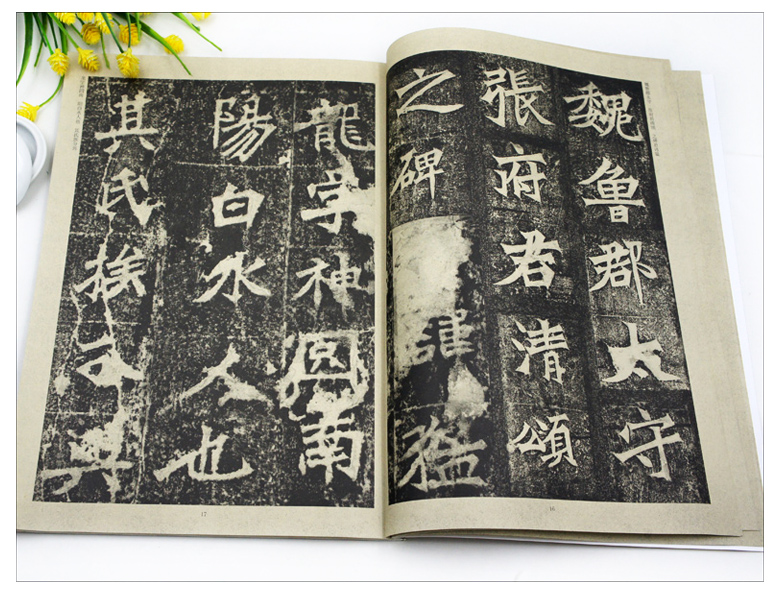 魏魯郡太守
張府君清頌
之碑
諱猛
16
龍字神南
陽白水人也
其氏族
17